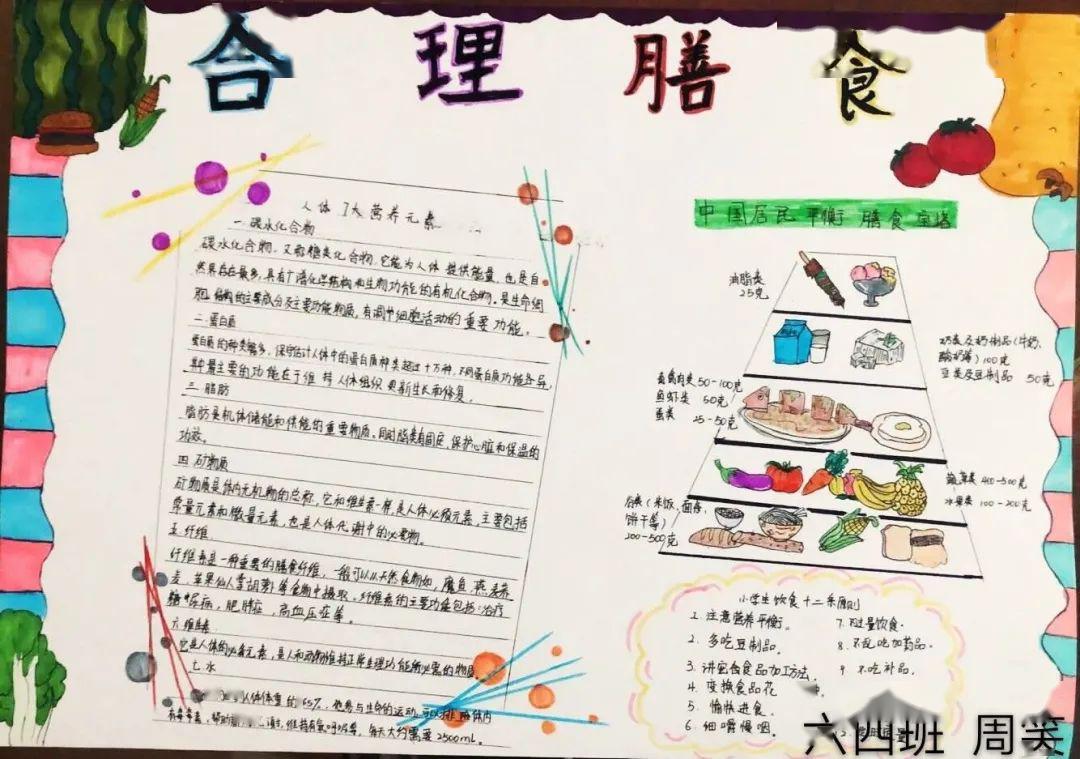 合理膳食
人体7大营养元素
一.碳水化合物
碳水化合物.又称糖类化合物.它能为人体提供能量.也是自
然界存在最多.具有广谱化学结构和生物功能的有机化合物.是生命细
胞结构的主要成分及主要功能物质,有调节细胞活动的重要功能。
二.蛋白质
蛋白质的种类繁多,保守估计人体中的蛋白质种类超过十万种,不同蛋白质功能各异,
其中最主要的功能在于维持人体组织更新生长和修复。
三.脂肪
脂肪是机体储能和供能的重要物质。同时脂类有固定,保护心脏和保温的
功效。
四.矿物质
矿物质是体内无机物的总称.它和维生素一样,是人体必须元素,主要包括
常量元素和微量元素,也是人体代谢中的必要物。
五.纤维
纤维素是一种重要的膳食纤维,一般可以从天然食物如,魔鬼,燕麦荞
麦,苹果仙人掌胡萝卜等食物中摄取.纤维素的主要功能包括:治疗
糖尿病,肥胖症,高血压症等。
六.维生素
它是人体的必需元素,是人和动物维持正常生理功能所必需的物质
七.水
人体体重的65%,
维持有氧呼吸等,每天大约需要2500mL。
中国居民平衡膳食宝塔
油脂类
25克
奶类及奶制品(牛奶,
酸奶等)100克
豆类及豆制品 50克
畜禽肉类50-100克
鱼虾类 50克
蛋类 25-50克
蔬菜类400-500克
水果类100-200克
谷类(米饭,面条,
饼干等)
200-500克
小学生饮食十二条原则
1. 注意营养平衡。
2. 多吃豆制品。
3. 讲究食品加工方法.
4. 变换食品花
5. 愉快进食.
6. 细嚼慢咽。
7. 不过量饮食.
8. 不乱吃加药品.
9. 不吃补品.
六四班 周笑